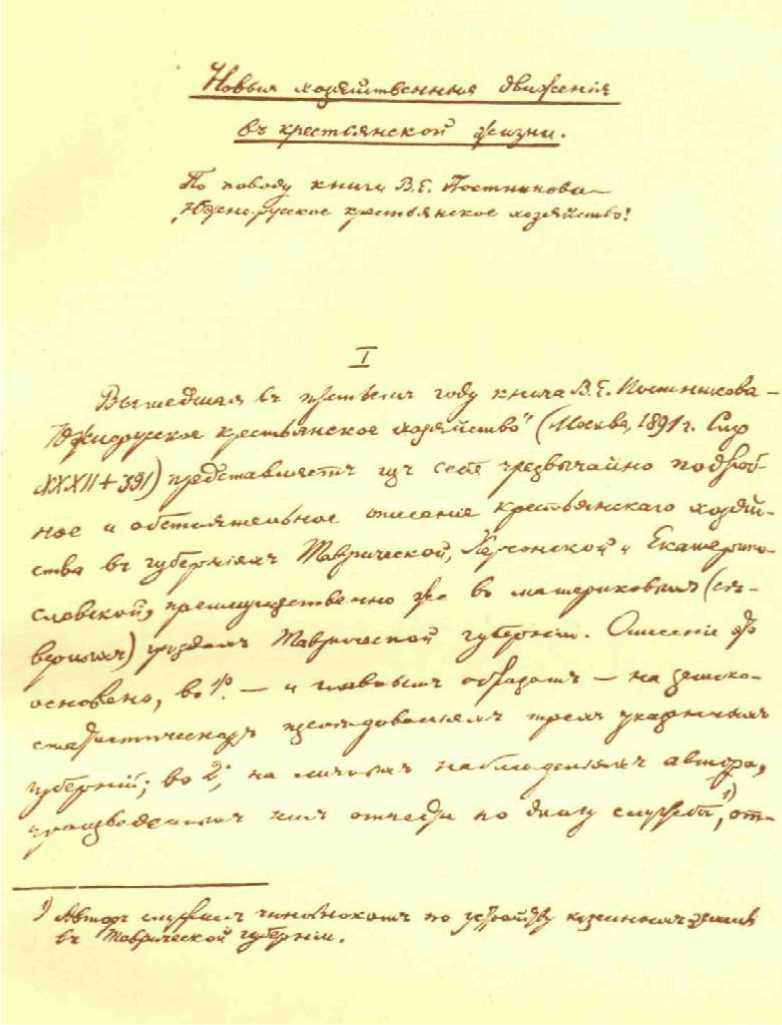 Новыя хозяйственныя движенія
въ крестьянской жизни.
По поводу книги В.Е. Постникова—
„Южно-русское крестьянское хозяйство“
I
Вышедшая въ третьемъ году книга В.Е. Постникова—
„Южнорусское крестьянское хозяйство“ (Москва, 1891 г. Стр
XXXII + 391) представляетъ изъ себя чрезвычайно подроб-
ное и обстоятельное описаніе крестьянскаго хозяй-
ства въ губерніяхъ Таврической, Херсонской и Екатерино-
славской, преимущественно же въ материковыхъ (сѣ-
верныхъ) уѣздахъ Таврической губерніи. Описаніе это
основано, во 1ъ. — и главнымъ образомъ — на земско-
статистическихъ изслѣдованіяхъ трехъ указанныхъ
губерній; во 2ъ, на личныхъ наблюденіяхъ автора,
производившихся имъ отчасти по долгу службы 1), от-
1) Авторъ служилъ чиновникомъ по устройству казенныхъ земель
въ Таврической губерніи.